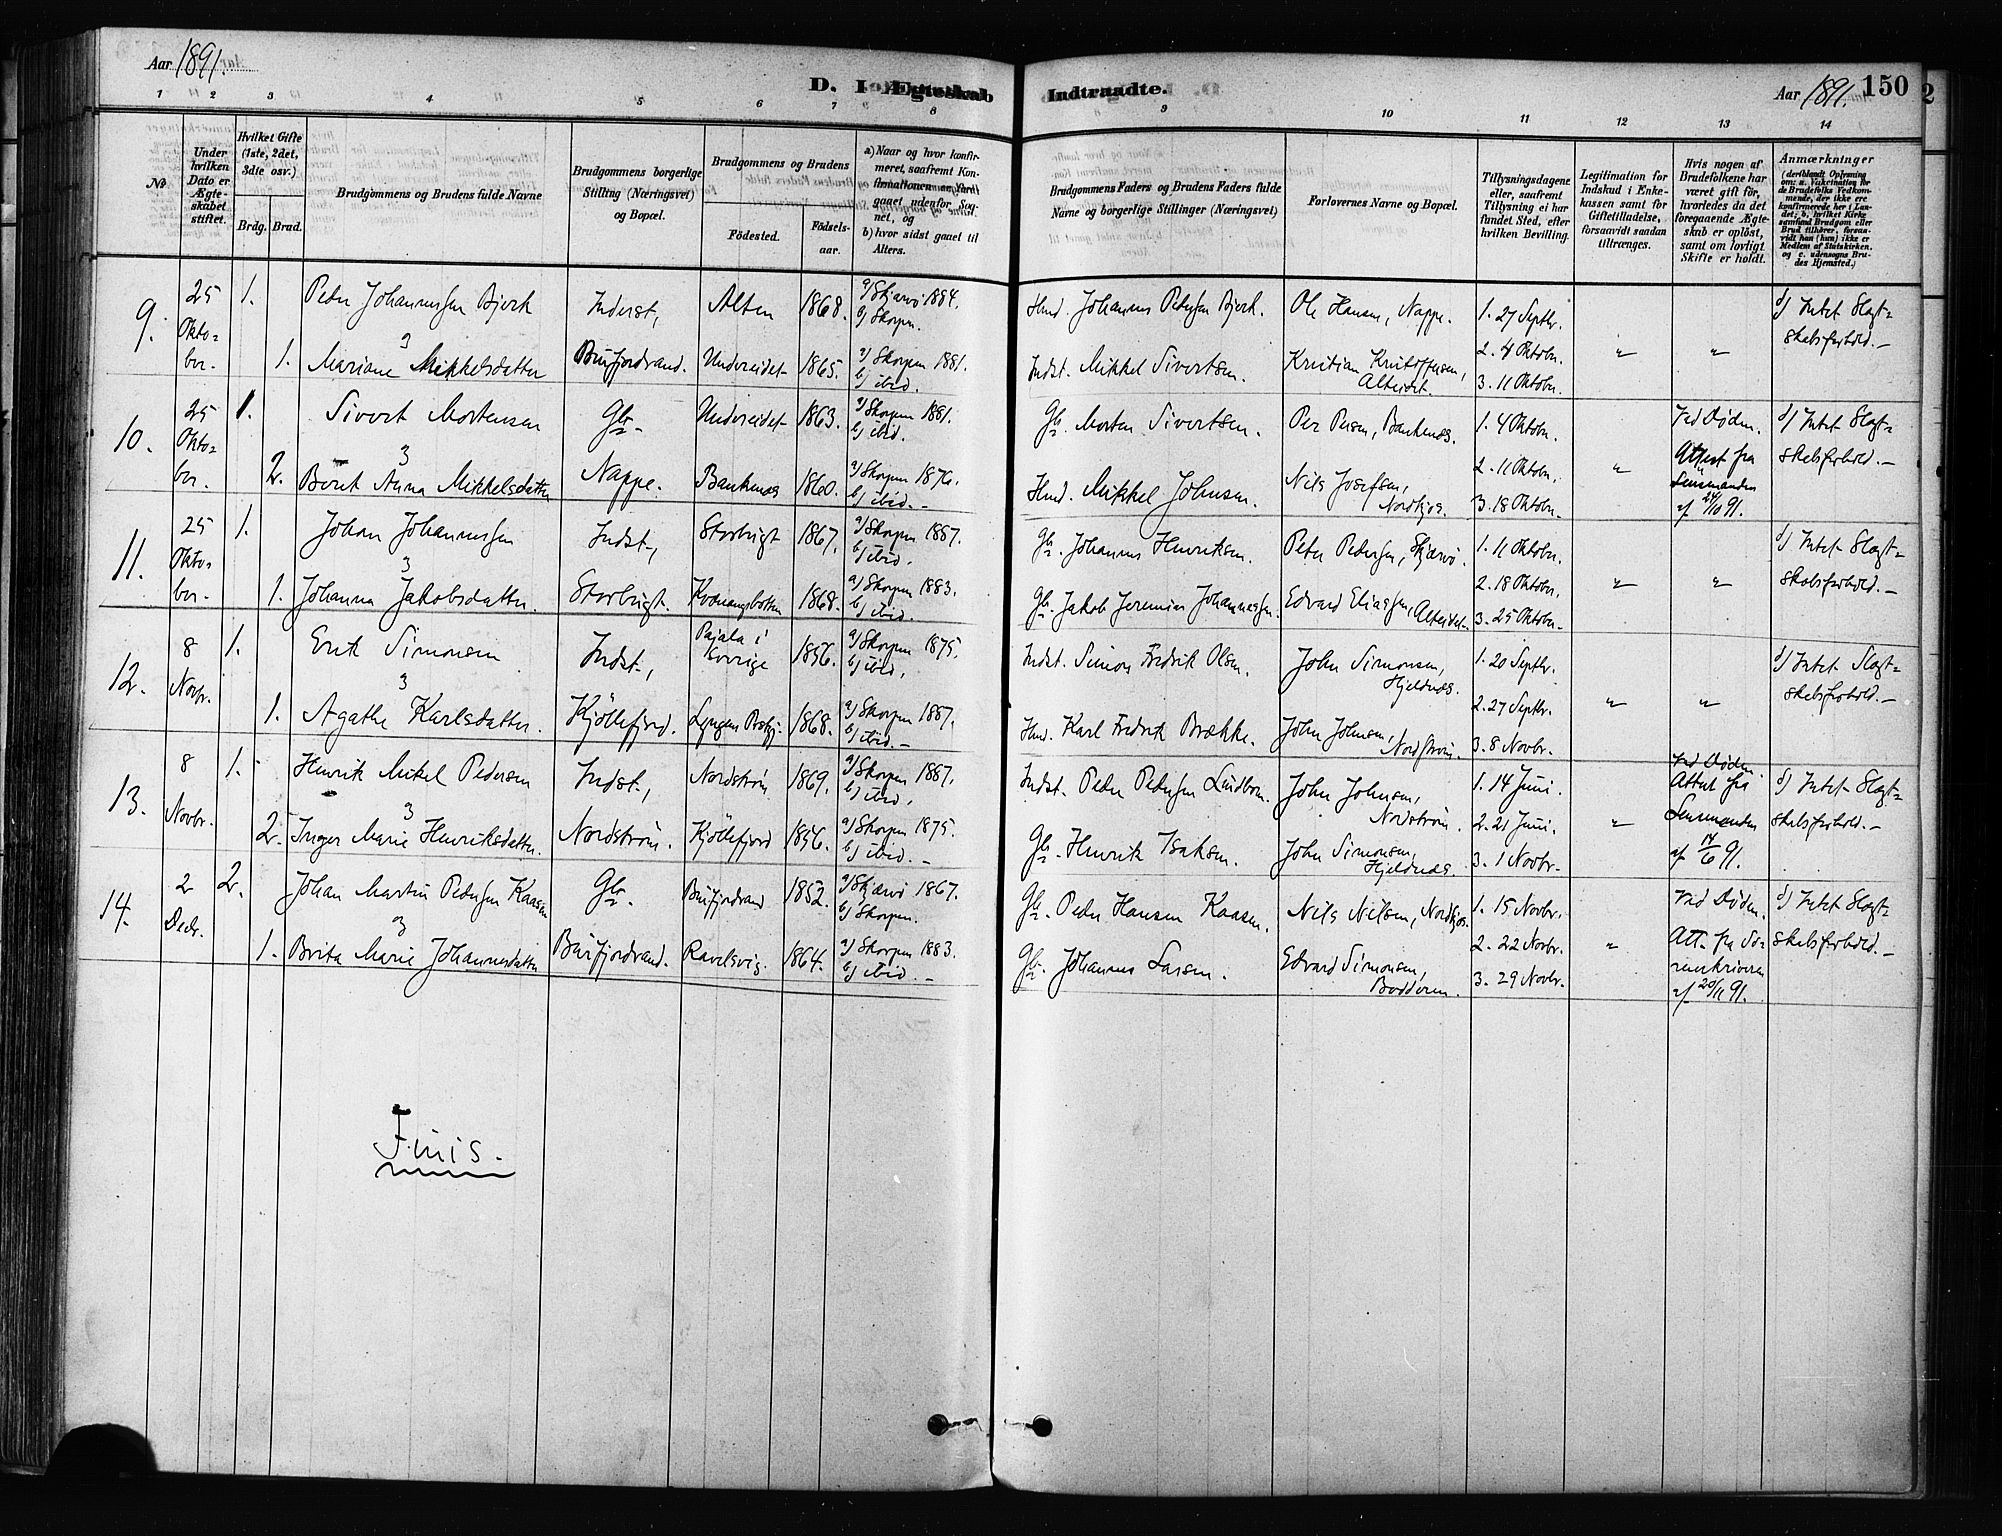 Aar 1891.
D. I Ægteskab Indtraadte.
Aar 1891. 150
1 2 3 4 5 6 7 8 9 10 11 12 13 14
No
Under hvilken Dato er Ægteskabet stiftet.
Hvilket Gifte (1ste, 2det, 3die osv.)
Brdg. Brud.
Brudgommens og Brudens fulde Navne
Brudgommens borgerlige Stilling (Næringsvei) og Bopæl.
Brudgommens og Brudens
Fødested.
Fødselsaar.
b) hvor sidst gaaet til Alters.
Brudgommens Faders og Brudens Faders fulde Navne og borgerlige Stillinger (Næringsvei)
Forlovernes Navne og Bopæl.
Tillysningsdagene eller, saafremt Tillysning ei har fundet Sted, efter hvilken Bevilling.
Legitimation for Indskud i Enkekassen samt for Giftetilladelse, forsaavidt saadan tiltrænges.
Hvis nogen af Brudefolkene har været gift før, hvorledes da det foregaaende Ægteskab er opløst, samt om lovligt Skifte er holdt.
Anmærkninger
9. 25 Oktobor. 1. Peder Johannessen Bjerk Inderst, Alten 1868. a) Skjærvø 1884. b) Skorpen. Hmd. Johannes Pedersen Bjerk. Ole Hansen, Nappe. 1. 27 Septbr. d) Intet Slægtskabsforhold.
1. Mariane Mikkelsdatter Burfjordvand. Undereidet 1865. a) Skorpen 1881. b) ibid. Indst. Mikkel Sivertsen. Kristian Kristoffersen, Alteidet. 2. 4 Oktobr. 3. 11 Oktobr. " "
10. 25 Oktobor. 1. Sivert Mortensen Gbr. Undereidet 1863. a) Skorpen 1881. b) ibid. Gbr. Morten Sivertsen. Per Persen, Baukenæs. 1. 4 Oktobr. Ved Døden. d) Intet Slægtskabsforhold.
2. Beret Anna Mikkelsdatter Nappe. Baukenæs 1860. a) Skorpen 1876. b) ibid. Hmd. Mikkel Johnsen. Nils Josefsen, Nordkjos. 2. 11 Oktobr. 3. 18 Oktobr. " Attest fra Lensmanden af 24/10 91.
11. 25 Oktobor. 1. Johan Johannessen Indst., Storbugt 1867. a) Skorpen 1887. b) ibid. Gbr. Johannes Henriksen. Peter Pedersen, Skjærvø. 1. 11 Oktobr. d) Intet Slægtskabsforhold.
1. Johanna Jakobsdatter. Storbugt. Kvænangsbotten 1868. a) Skorpen 1883. b) ibid. Gbr. Jakob Jeremias Johannessen. Edvard Eliassen, Alteidet. 2. 18 Oktobr. 3. 25 Oktobr. " "
12. 8 Novbr. 1. Erik Simonsen Indst., Pajala i Sverrige 1856. a) Skorpen 1875. b) ibid. Indst. Simon Fredrik Olsen. John Simonsen, Hjeldnæs. 1. 20 Septbr. d) Intet Slægtskabsforhold.
1. Agathe Karlsdatter. Kjöllefjord. Lyngens Præstgj. 1868. a) Skorpen 1887. b) ibid. Hmd. Karl Fredrik Brække. John Johnsen, Nordstrøm. 2. 27 Septbr. 3. 8 Novbr. " "
13. 8 Novbr. 1. Henrik Mikel Pedersen Indst., Nordstrøm 1869. a) Skorpen 1887. b) ibid. Indst. Peder Pedersen Lindbom. John Johnsen, Nordström. 1. 14 Juni. Ved Døden. d) Intet Slægtskabsforhold.
2. Inger Marie Henriksdatter. Nordström. Kjöllefjord 1856. a) Skorpen 1875. b) ibid. Gbr. Henrik Isaksen. John Simonsen, Hjeldnæs. 2. 21 Juni. 3. 1 Novbr. " Attest fra Lensmanden af 14/6 91.
14. 2 Decbr. 2. Johan Martin Pedersen Kaasen Gbr. Burfjordvand 1852. a) Skjærvø 1867. b) Skorpen. Gbr. Peder Hansen Kaasen. Nils Nilsen, Nordkjos. 1. 15 Novbr. Ved Døden. d) Intet Slægtskabsforhold.
1. Brita Marie Johannesdatter Burfjordvand. Ravelsvig. 1864. a) Skorpen 1883. b) ibid. Gbr. Johannes Larsen. Edvard Simonsen, Badderen. 2. 22 Novbr. 3. 29 Novbr. " Att. fra Sorenskriveren af 20/11 91.
Finis.